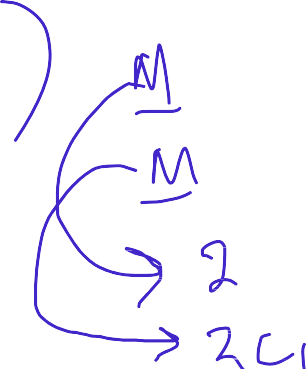 M
M
2
2C